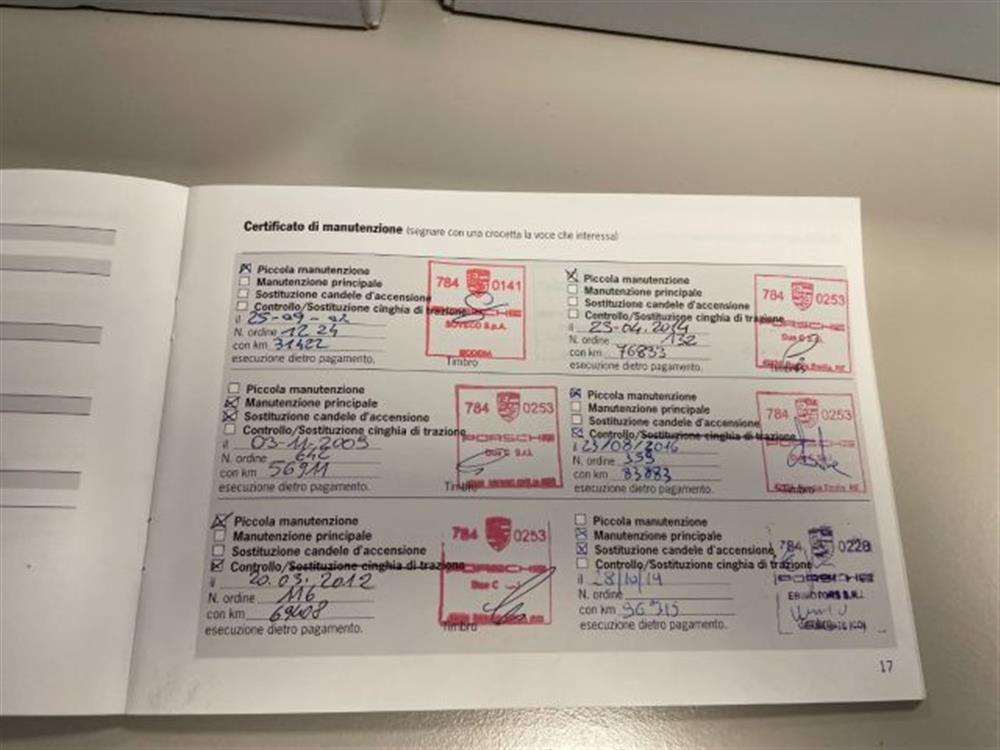 Certificato di manutenzione (segnare con una crocetta la voce che interessa)
Piccola manutenzione
Manutenzione principale
Sostituzione candele d'accensione
Controllo/Sostituzione cinghia di trazione
il 25-09-
N. ordine 1224
con km 31422
esecuzione dietro pagamento.
Timbro
784 0141
PORSCHE
SOVECO S.p.A.
MODENA
Piccola manutenzione
Manutenzione principale
Sostituzione candele d'accensione
Controllo/Sostituzione cinghia di trazione
il 03-11-2009
N. ordine 642
con km 56911
esecuzione dietro pagamento.
Timbro
784 0253
PORSCHE
Due C S.r.l.
Piccola manutenzione
Manutenzione principale
Sostituzione candele d'accensione
Controllo/Sostituzione cinghia di trazione
il 20.03.2012
N. ordine 116
con km 69408
esecuzione dietro pagamento.
Timbro
784 0253
PORSCHE
Due C
Piccola manutenzione
Manutenzione principale
Sostituzione candele d'accensione
Controllo/Sostituzione cinghia di trazione
il 23-04.2014
N. ordine 132
con km 76833
esecuzione dietro pagamento.
Timbro
784 0253
PORSCHE
Due C S.r.l.
Reggio Emilia, RE
Piccola manutenzione
Manutenzione principale
Sostituzione candele d'accensione
Controllo/Sostituzione cinghia di trazione
il 23/08/2016
N. ordine 359
con km 83883
esecuzione dietro pagamento.
Timbro
784 0253
PORSCHE
Reggio Emilia, RE
Piccola manutenzione
Manutenzione principale
Sostituzione candele d'accensione
Controllo/Sostituzione cinghia di trazione
il 28/10/19
N. ordine
con km 96915
esecuzione dietro pagamento.
784 0228
PORSCHE
S.R.L.
17